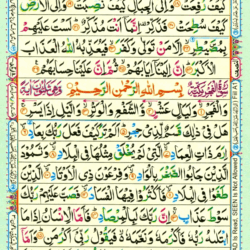 كَيْفَ رُفِعَتْ ۝ وَاِلَى الْجِبَالِ كَيْفَ نُصِبَتْ ۝ وَاِلَى الْاَرْضِ
كَيْفَ سُطِحَتْ ۝ فَذَكِّرْ اِنَّمَآ اَنْتَ مُذَكِّرٌ ۝ لَسْتَ عَلَيْهِمْ
بِمُصَۜيْطِرٍ ۝ اِلَّا مَنْ تَوَلّٰى وَكَفَرَ ۝ فَيُعَذِّبُهُ اللّٰهُ الْعَذَابَ
الْاَكْبَرَ ۝ اِنَّ اِلَيْنَآ اِيَابَهُمْ ۝ ثُمَّ اِنَّ عَلَيْنَا حِسَابَهُمْ ۝
بِسْمِ اللّٰهِ الرَّحْمٰنِ الرَّحِيْمِ
وَالْفَجْرِ ۝ وَلَيَالٍ عَشْرٍ ۝ وَّالشَّفْعِ وَالْوَتْرِ ۝ وَالَّيْلِ اِذَا يَسْرِ ۝
هَلْ فِيْ ذٰلِكَ قَسَمٌ لِّذِيْ حِجْرٍ ۝ اَلَمْ تَرَ كَيْفَ فَعَلَ رَبُّكَ بِعَادٍ ۝
اِرَمَ ذَاتِ الْعِمَادِ ۝ الَّتِيْ لَمْ يُخْلَقْ مِثْلُهَا فِي الْبِلَادِ ۝ وَثَمُوْدَ
الَّذِيْنَ جَابُوا الصَّخْرَ بِالْوَادِ ۝ وَفِرْعَوْنَ ذِي الْاَوْتَادِ ۝ الَّذِيْنَ
طَغَوْا فِي الْبِلَادِ ۝ فَاَكْثَرُوْا فِيْهَا الْفَسَادَ ۝ فَصَبَّ عَلَيْهِمْ رَبُّكَ
سَوْطَ عَذَابٍ ۝ اِنَّ رَبَّكَ لَبِالْمِرْصَادِ ۝ فَاَمَّا الْاِنْسَانُ اِذَا مَا
Read, SEEN Is Not Allowed